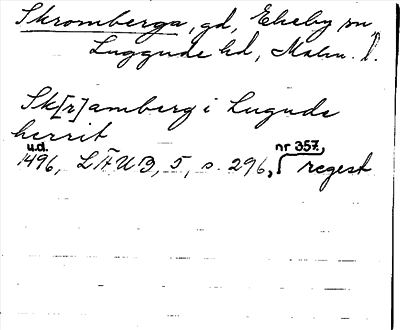 Skromberga, gd, Ekeby sn
Luggude hd, Malm. l.
Sk[r]amberg i Lugude
herrit
u.d. nr 357,
1496, LÄUB, 5, s. 296, regest